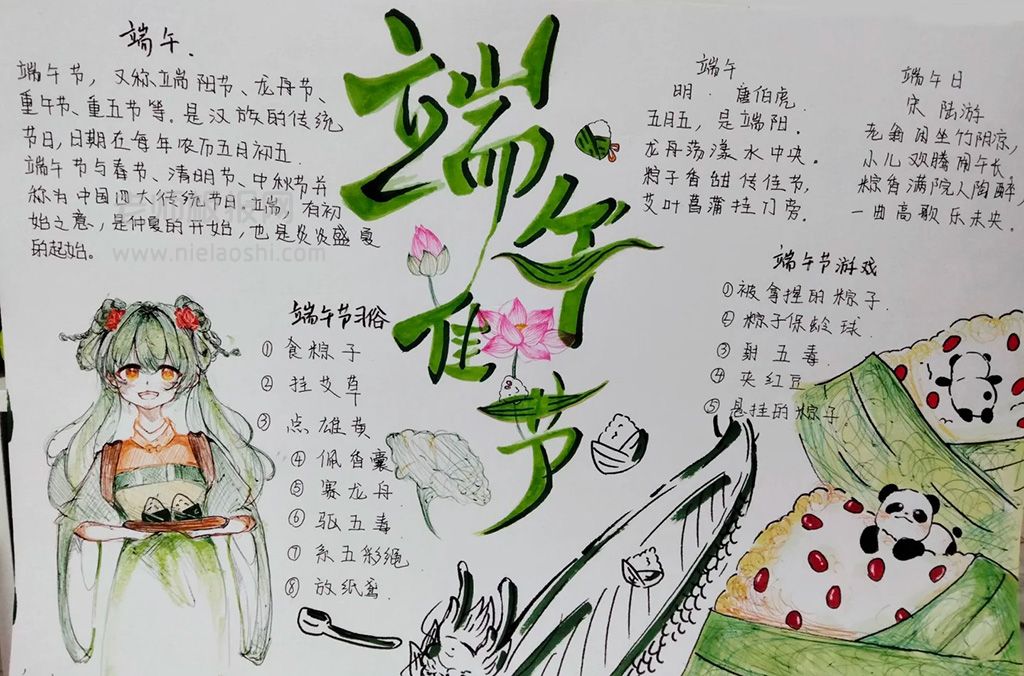 端午.
端午节，又称端阳节、龙舟节、
重午节、重五节等。是汉族的传统
节日，日期在每年农历五月初五.
端午节与春节、清明节、中秋节并
称为中国四大传统节日。端，有初
始之意，是仲夏的开始，也是炎炎盛夏
的起始。
www.nielaoshi.com
端午佳节
端午
明.唐伯虎.
五月五，是端阳。
龙舟荡漾水中央。
粽子香甜传佳节，
艾叶菖蒲挂门旁。
端午日
宋 陆游
老翁闲坐竹阴凉，
小儿欢腾闹午长
粽香满院人陶醉，
一曲高歌乐未央.
端午节习俗
① 食粽子
② 挂艾草
③ 点雄黄
④ 佩香囊
⑤ 赛龙舟
⑥ 驱五毒
⑦ 系五彩绳
⑧ 放纸鸢
端午节游戏
①被拿捏的粽子.
② 粽子保龄球.
③ 射五毒
④ 夹红豆
⑤ 悬挂的粽子